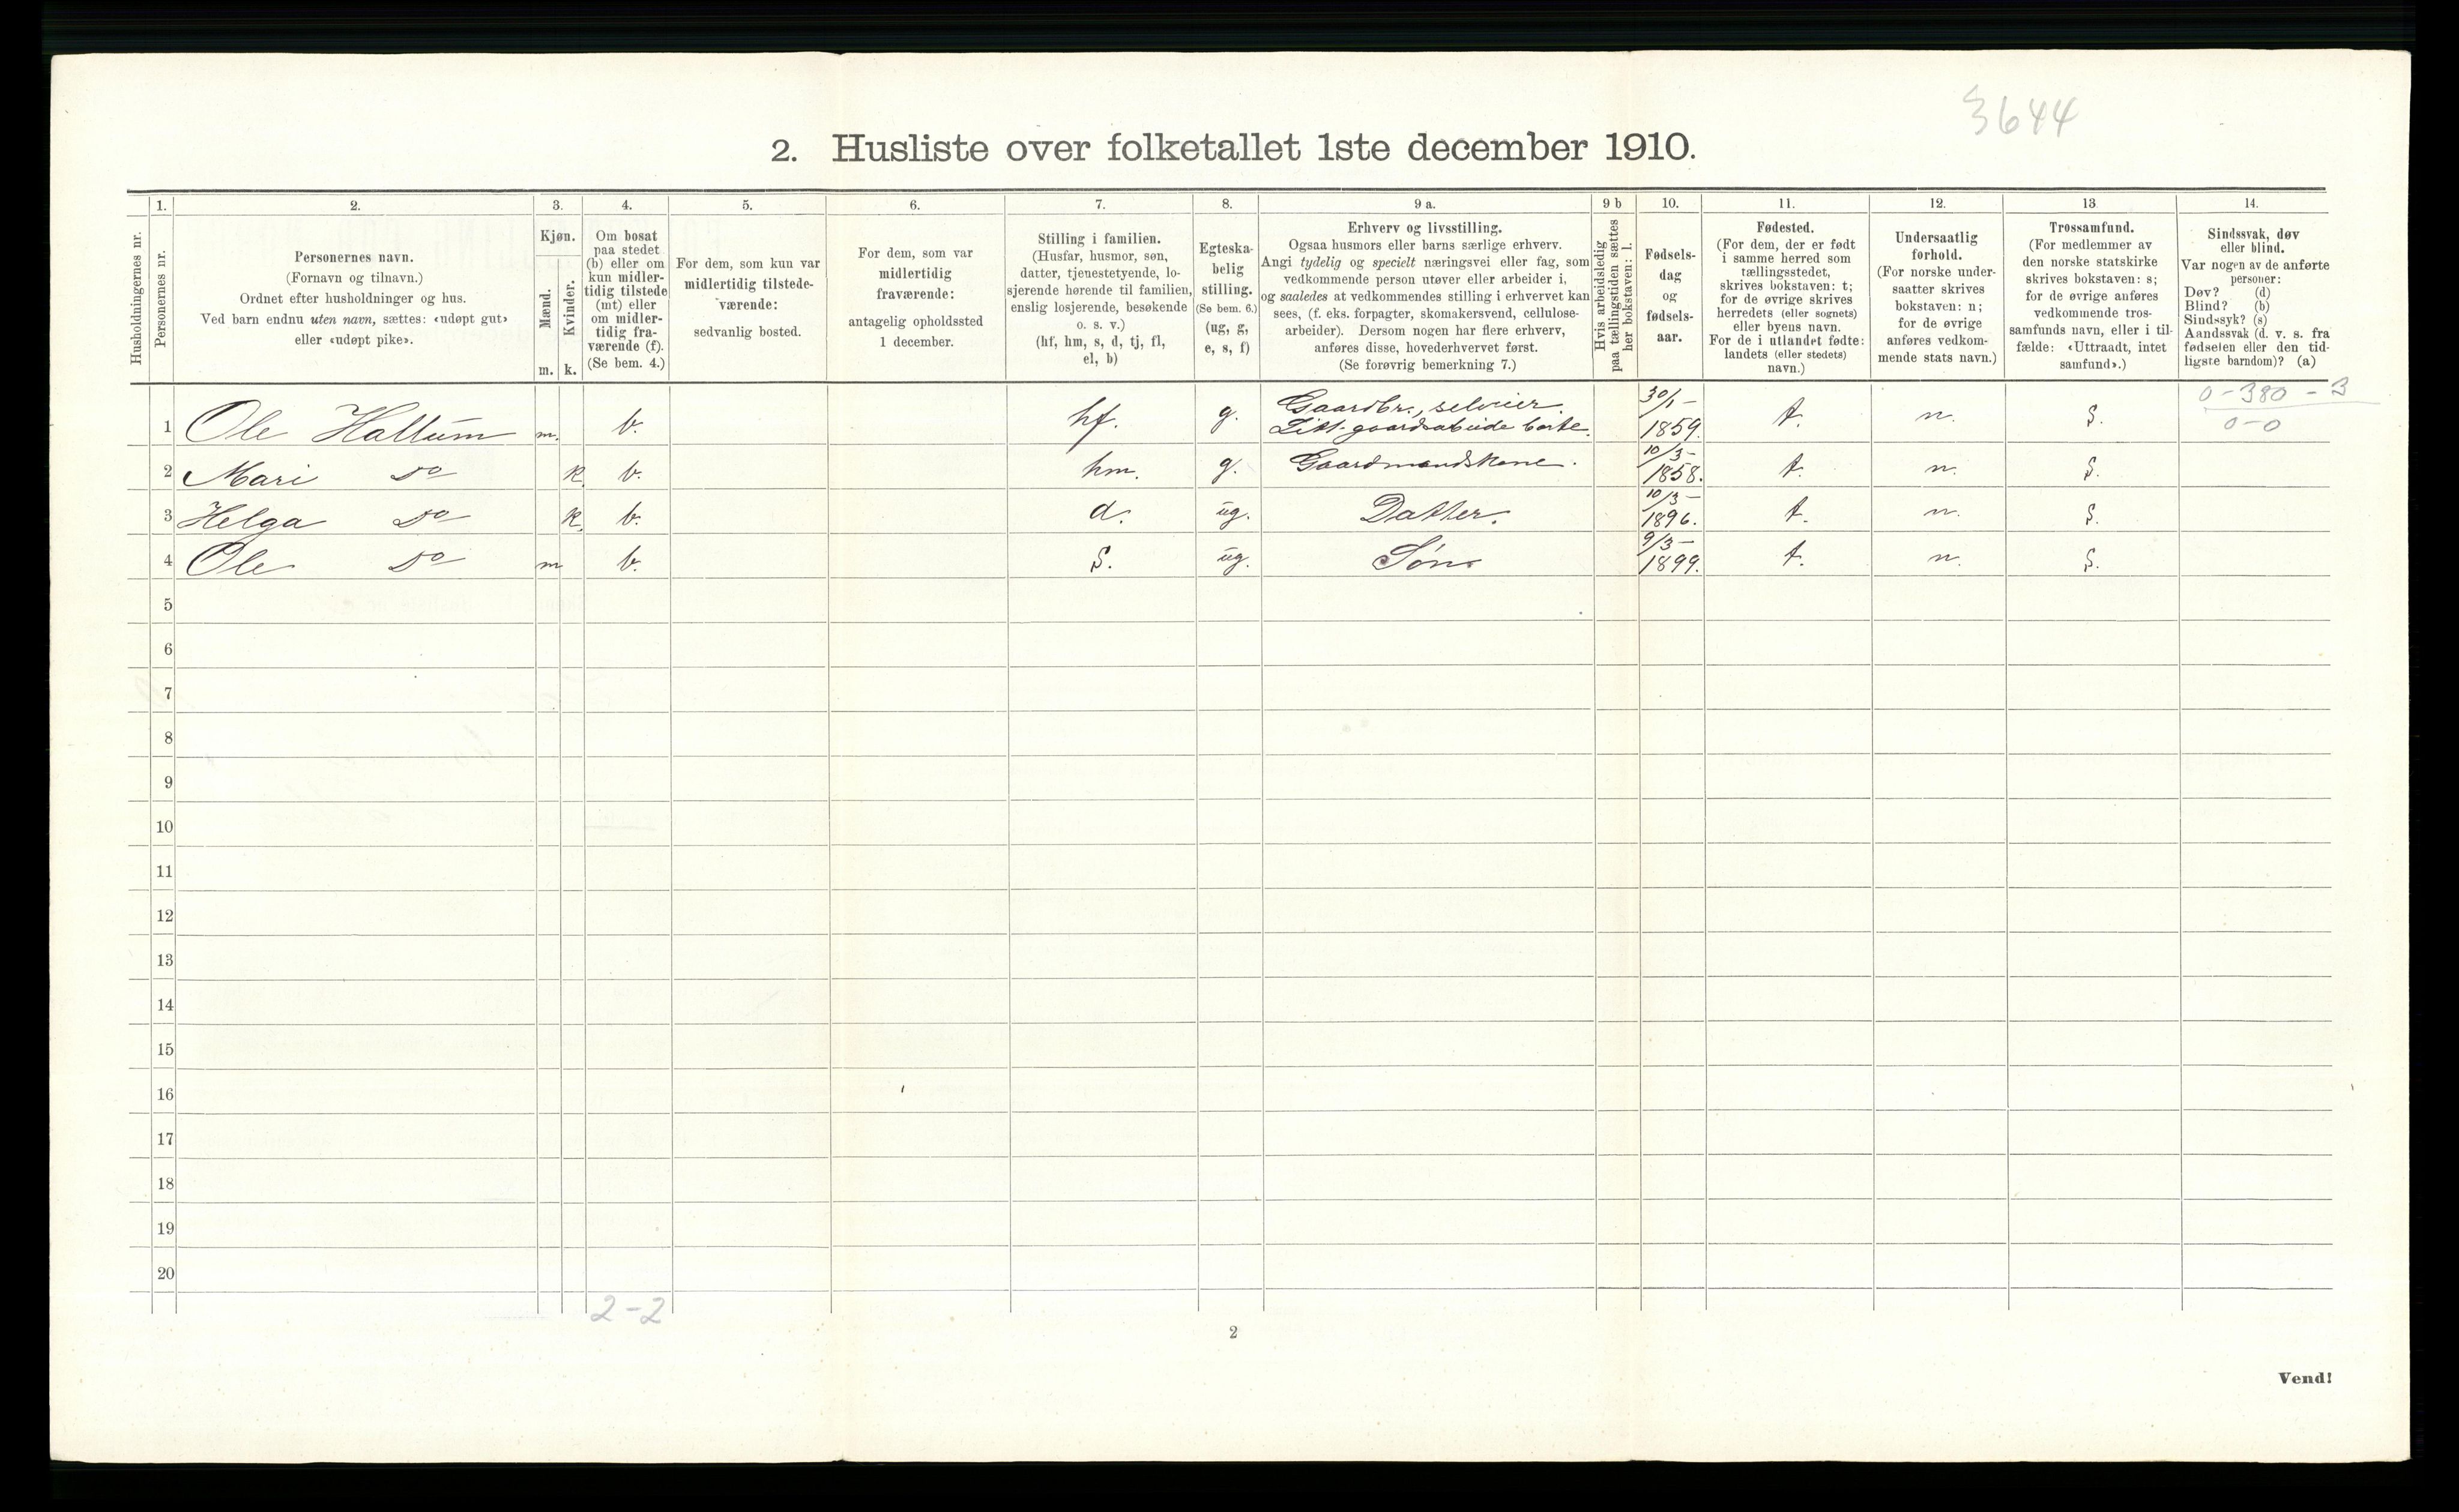 3644
2. Husliste over folketallet 1ste december 1910.
1. 2. 3. 4. 5. 6. 7. 8. 9 a. 9 b 10. 11. 12. 13 14.
Husholdningernes nr.
Personernes nr.
Personernes navn.
(Fornavn og tilnavn.)
Ordnet efter husholdninger og hus.
Ved barn endnu uten navn, sættes: «udøpt gut»
eller «udøpt pike».
Kjøn.
Mænd.
Kvinder.
m. k.
Om bosat
paa stedet
(b) eller om
kun midler-
tidig tilstede
(mt) eller
om midler-
tidig fra-
værende (f).
(Se bem. 4.)
For dem, som kun var
midlertidig tilstede-
værende:
sedvanlig bosted.
For dem, som var
midlertidig
fraværende:
antagelig opholdssted
1 december.
Stilling i familien.
(Husfar, husmor, søn,
datter, tjenestetyende, lo-
sjerende hørende til familien,
enslig losjerende, besøkende
o. s. v.)
(hf, hm, s, d, tj, fl,
el, b)
Egteska-
belig
stilling.
(Se bem. 6.)
(ug, g,
e, s, f)
Erhverv og livsstilling.
Ogsaa husmors eller barns særlige erhverv.
Angi tydelig og specielt næringsvei eller fag, som
vedkommende person utøver eller arbeider i,
og saaledes at vedkommendes stilling i erhvervet kan
sees, (f. eks. forpagter, skomakersvend, cellulose-
arbeider). Dersom nogen har flere erhverv,
anføres disse, hovederhvervet først.
(Se forøvrig bemerkning 7.)
Hvis arbeidsledig
paa tællingstiden sættes
her bokstaven: l.
Fødsels-
dag
og
fødsels-
aar.
Fødested.
(For dem, der er født
i samme herred som
tællingsstedet,
skrives bokstaven: t;
for de øvrige skrives
herredets (eller sognets)
eller byens navn.
For de i utlandet fødte:
landets (eller stedets)
navn.)
Undersaatlig
forhold.
(For norske under-
saatter skrives
bokstaven: n;
for de øvrige
anføres vedkom-
mende stats navn.)
Trossamfund.
(For medlemmer av
den norske statskirke
skrives bokstaven: s;
for de øvrige anføres
vedkommende tros-
samfunds navn, eller i til-
fælde: «Uttraadt, intet
samfund».)
Sindssvak, døv
eller blind.
Var nogen av de anførte
personer:
Døv? (d)
Blind? (b)
Sindssyk? (s)
Aandssvak (d. v. s. fra
fødselen eller den tid-
ligste barndom)? (a)
0-380-3
0-0
1 Ole Hallum m. b. hf. g. Gaardbr., selveier. 30/1-
Litt gaardsarbeide borte. 1859. t. n. s.
2 Mari do k. b. hm. g. Gaardmandskone. 10/3-
1858. t. n. s.
3 Helga do k. b. d. ug. Datter. 10/3-
1896. t. n. s.
4 Ole do m b. s. ug. Søn 9/3-
1899. t. n. s.
5
6
7
8
9
10
11
12
13
14
15
16
17
18
19
20
2-2
2
Vend!